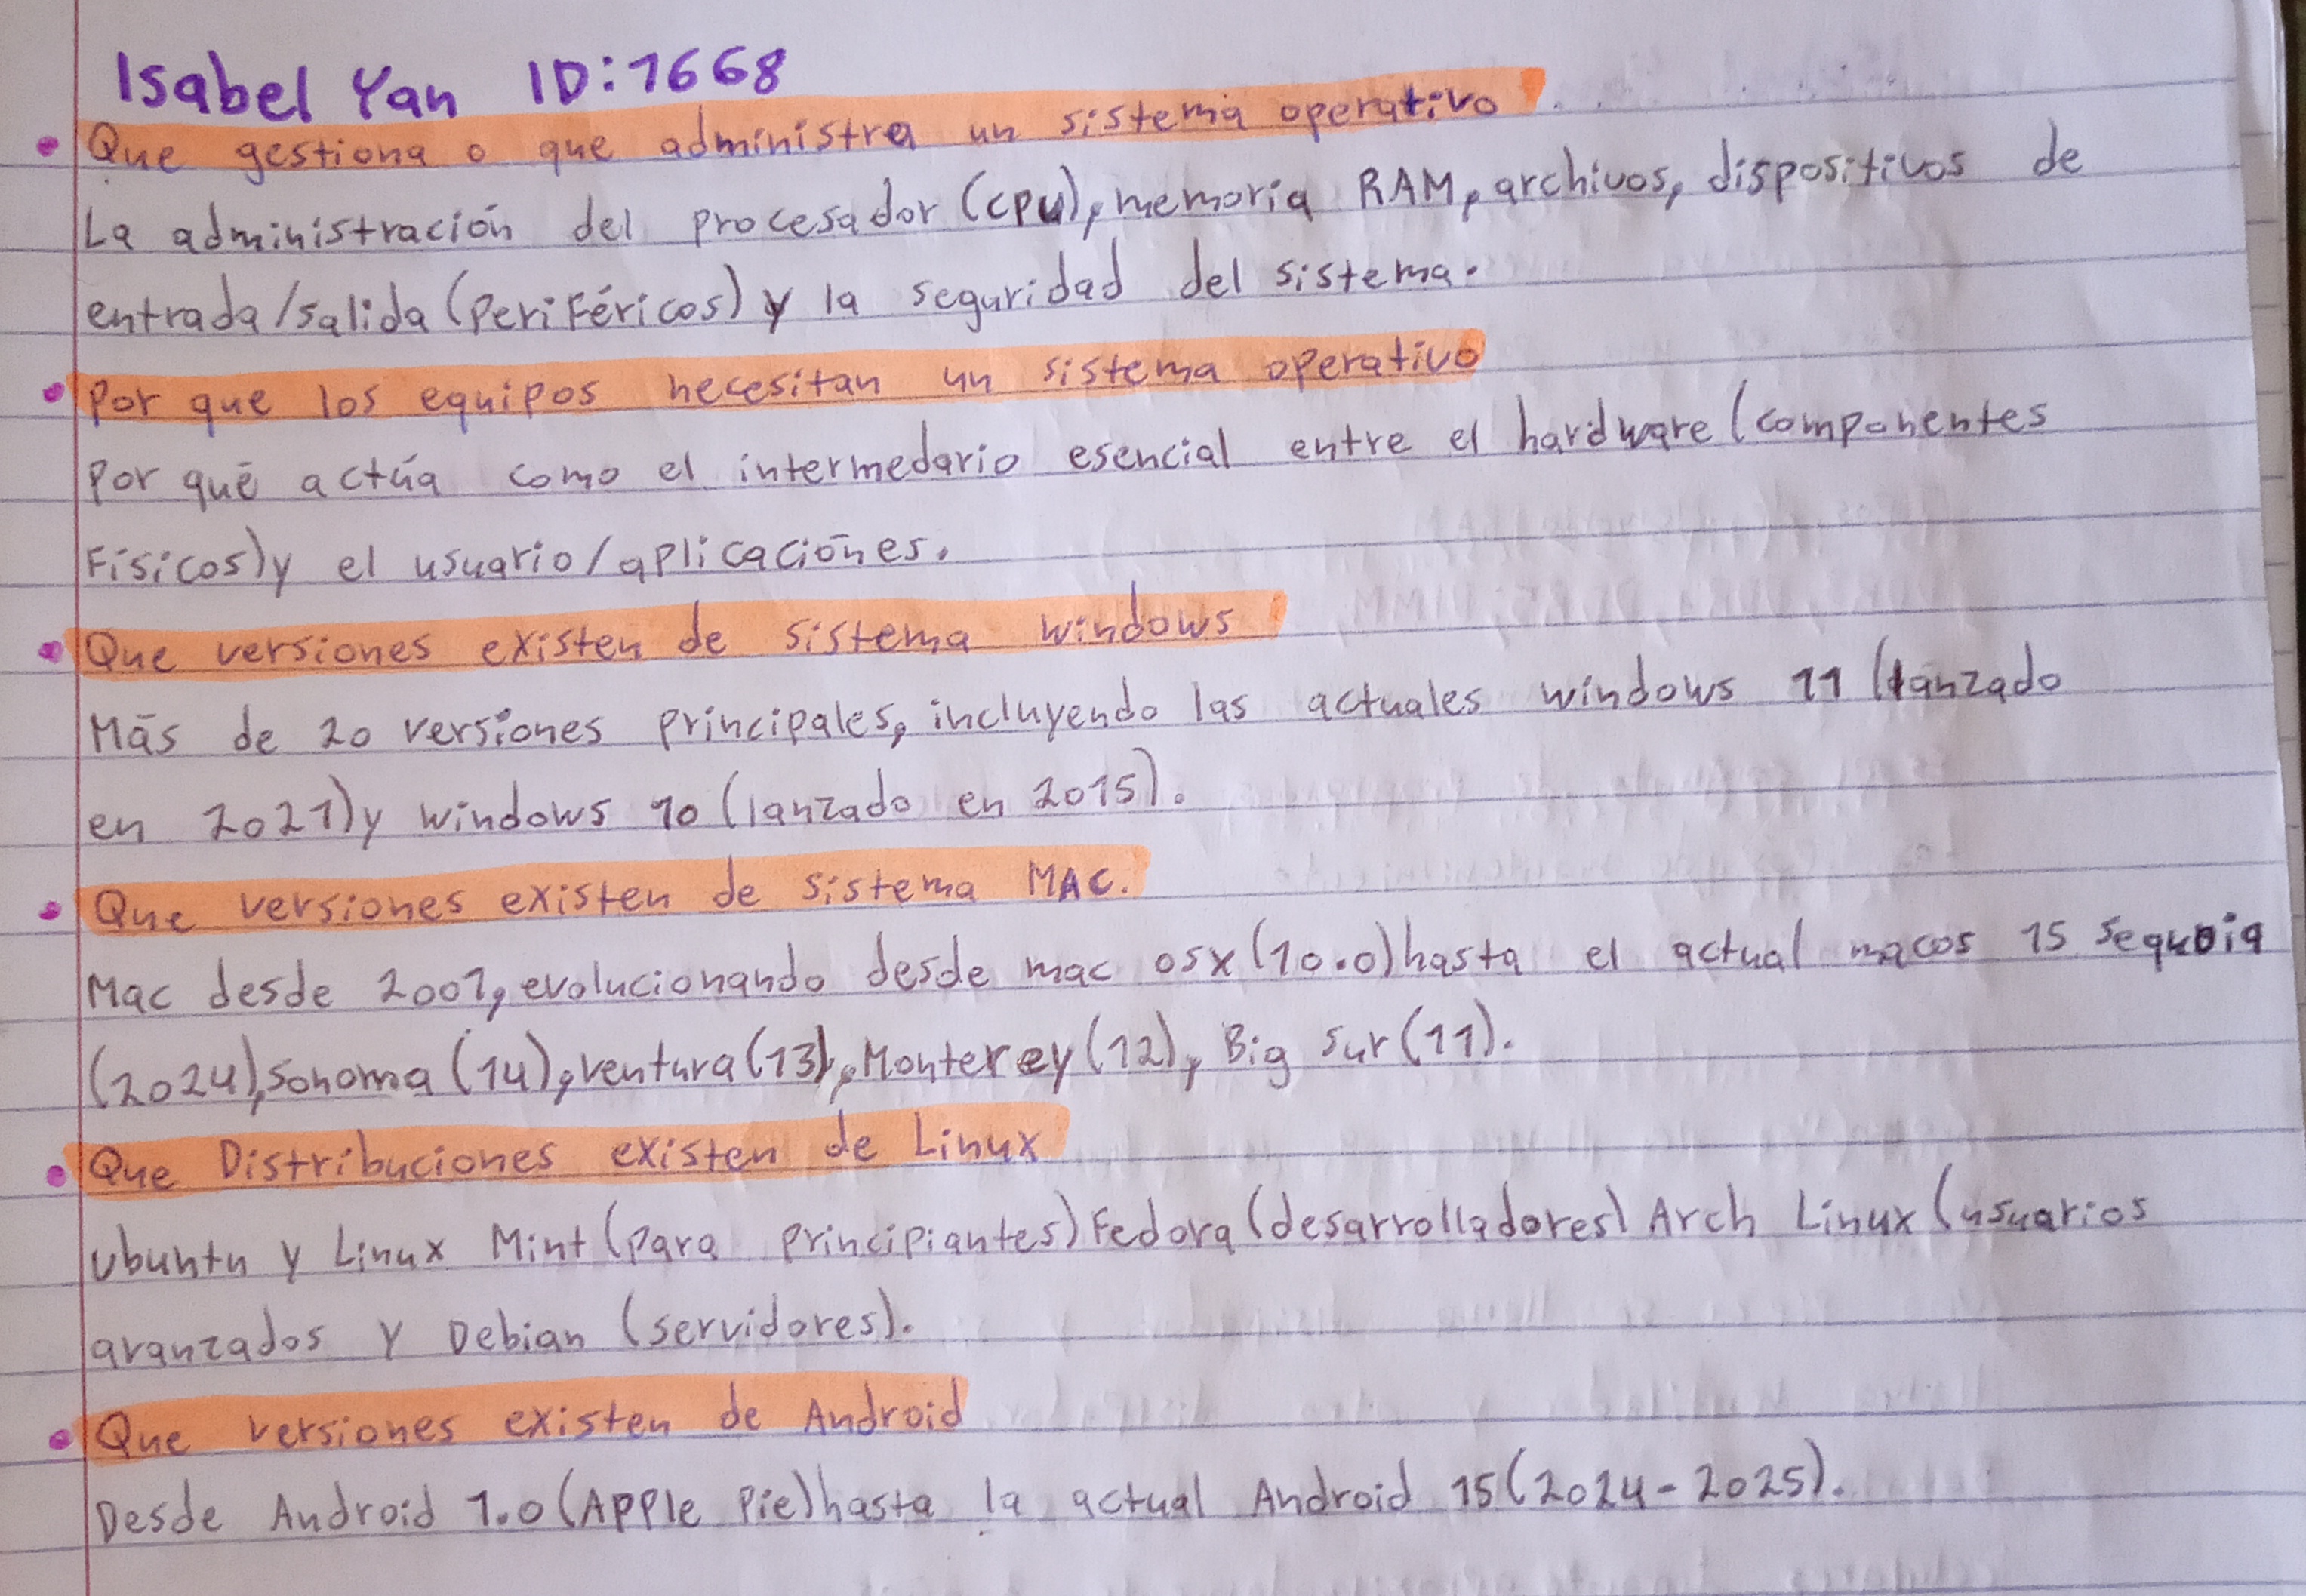 Isabel Yan ID:1668
Que gestiona o que administra un sistema operativo
La administración del procesador (cpu), memoria RAM, archivos, dispositivos de
entrada/salida (Periféricos) y la seguridad del sistema.
Por que los equipos necesitan un sistema operativo
Por qué actúa como el intermedario esencial entre el hardware (componentes
Físicos) y el usuario/aplicaciónes.
Que versiones existen de sistema windows
Más de 20 versiones principales, incluyendo las actuales windows 11 (lanzado
en 2021) y windows 10 (lanzado en 2015).
Que versiones existen de sistema MAC.
Mac desde 2001, evolucionando desde mac osx (10.0) hasta el actual macos 15 sequoia
(2024), Sonoma (14), ventura (13), Monterey (12), Big Sur (11).
Que Distribuciones existen de Linux
Ubuntu y Linux Mint (para principiantes) Fedora (desarrolladores) Arch Linux (usuarios
avanzados y Debian (servidores).
Que versiones existen de Android
Desde Android 1.0 (Apple Pie) hasta la actual Android 15 (2024-2025).